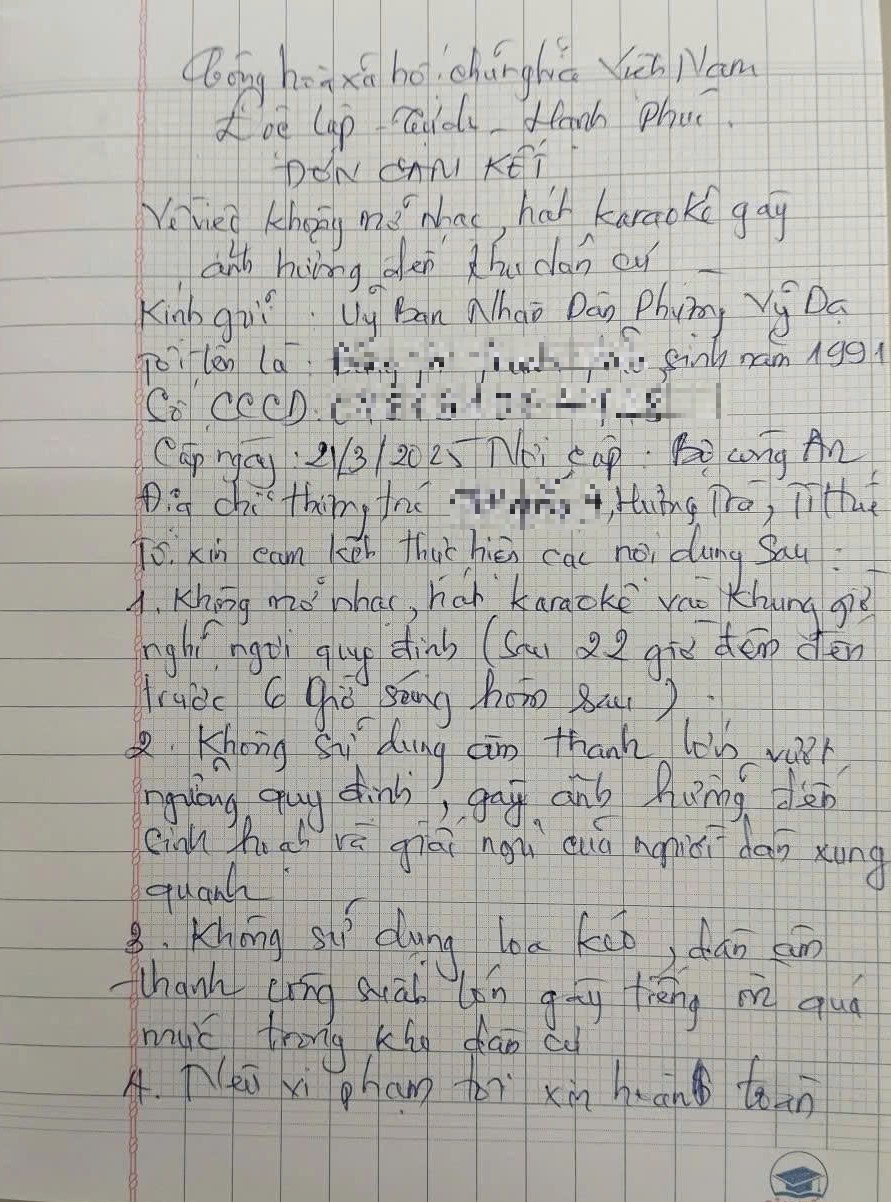 Cộng hoà xã hội chủ nghĩa Việt Nam
Độc lập - Tự do - Hạnh Phúc.
ĐƠN CAM KẾT
Về việc không mở nhạc, hát karaokê gây
ảnh hưởng đến khu dân cư
Kính gửi : Uỷ Ban Nhân Dân Phường Vỹ Dạ
Tôi tên là : , sinh năm 1991
Số CCCD:
Cấp ngày : 21/3/2025 Nơi cấp : Bộ công An
Địa chỉ thường trú , Hương Trà, TT Huế
Tôi xin cam kết thực hiện các nội dung Sau :
1. Không mở nhạc, hát karaokê vào khung giờ
nghỉ ngơi quy định (Sau 22 giờ đêm đến
trước 6 giờ sáng hôm sau).
2. Không sử dụng âm thanh lớn vượt
ngưỡng quy định, gây ảnh hưởng đến
sinh hoạt và giấc ngủ của người dân xung
quanh
3. Không sử dụng loa kéo, dàn âm
thanh công suất lớn gây tiếng ồn quá
mức trong khu dân cư
4. Nếu vi phạm tôi xin hoàn toàn